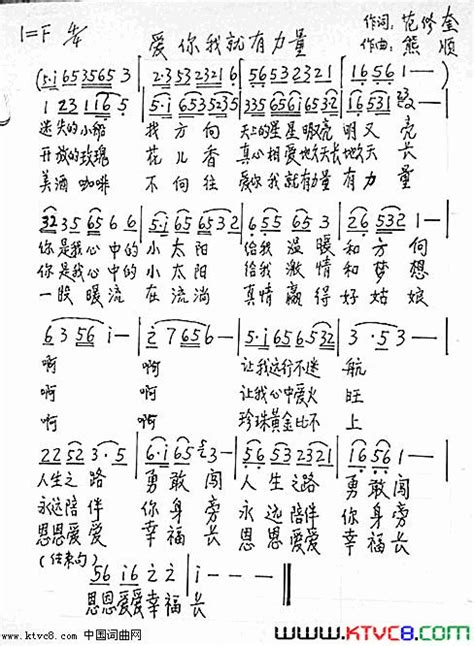 1=F 4/4
爱你我就有力量
作词:范修奎
作曲:熊顺
(5·i 653565 3 | 2·35323216 | 5653 2321 | 16561 — )
1 23 1165 | 5·i 6535235 | 335656i6532 | 16531 2
迷失的小船 找方向 天上的星星眼亮 明又亮
开放的玫瑰 花儿香 真心相爱地久天长地久天长
美酒咖啡 不向往 爱你我就有力量有力量
3235 6566 | 5·i 656532 | 6 55 653 | 26 5321 — |
你是我心中的小太阳 给我温暖和方向
你是我心中的小太阳 给我激情和梦想
一股暖流在流淌 真情赢得好姑娘
6 3 56 i — | 2 7656 — | 5·i 656532 | 3 · 53 — |
啊 啊 让我远行不迷航
啊 啊 让我心中爱火旺
啊 啊 珍珠黄金比不上
22523·5 | 6·i653 — | 56532321 | 16561 — |
人生之路 勇敢闯 人生之路 勇敢闯
永远陪伴 你身旁 永远陪伴 你身旁
恩恩爱爱 幸福长 恩恩爱爱 幸福长
(结束句)
56 i6 2 2 | i — — — ‖
恩恩爱爱幸福长
www.ktvc8.com 中国词曲网
WWW.KTVC8.COM